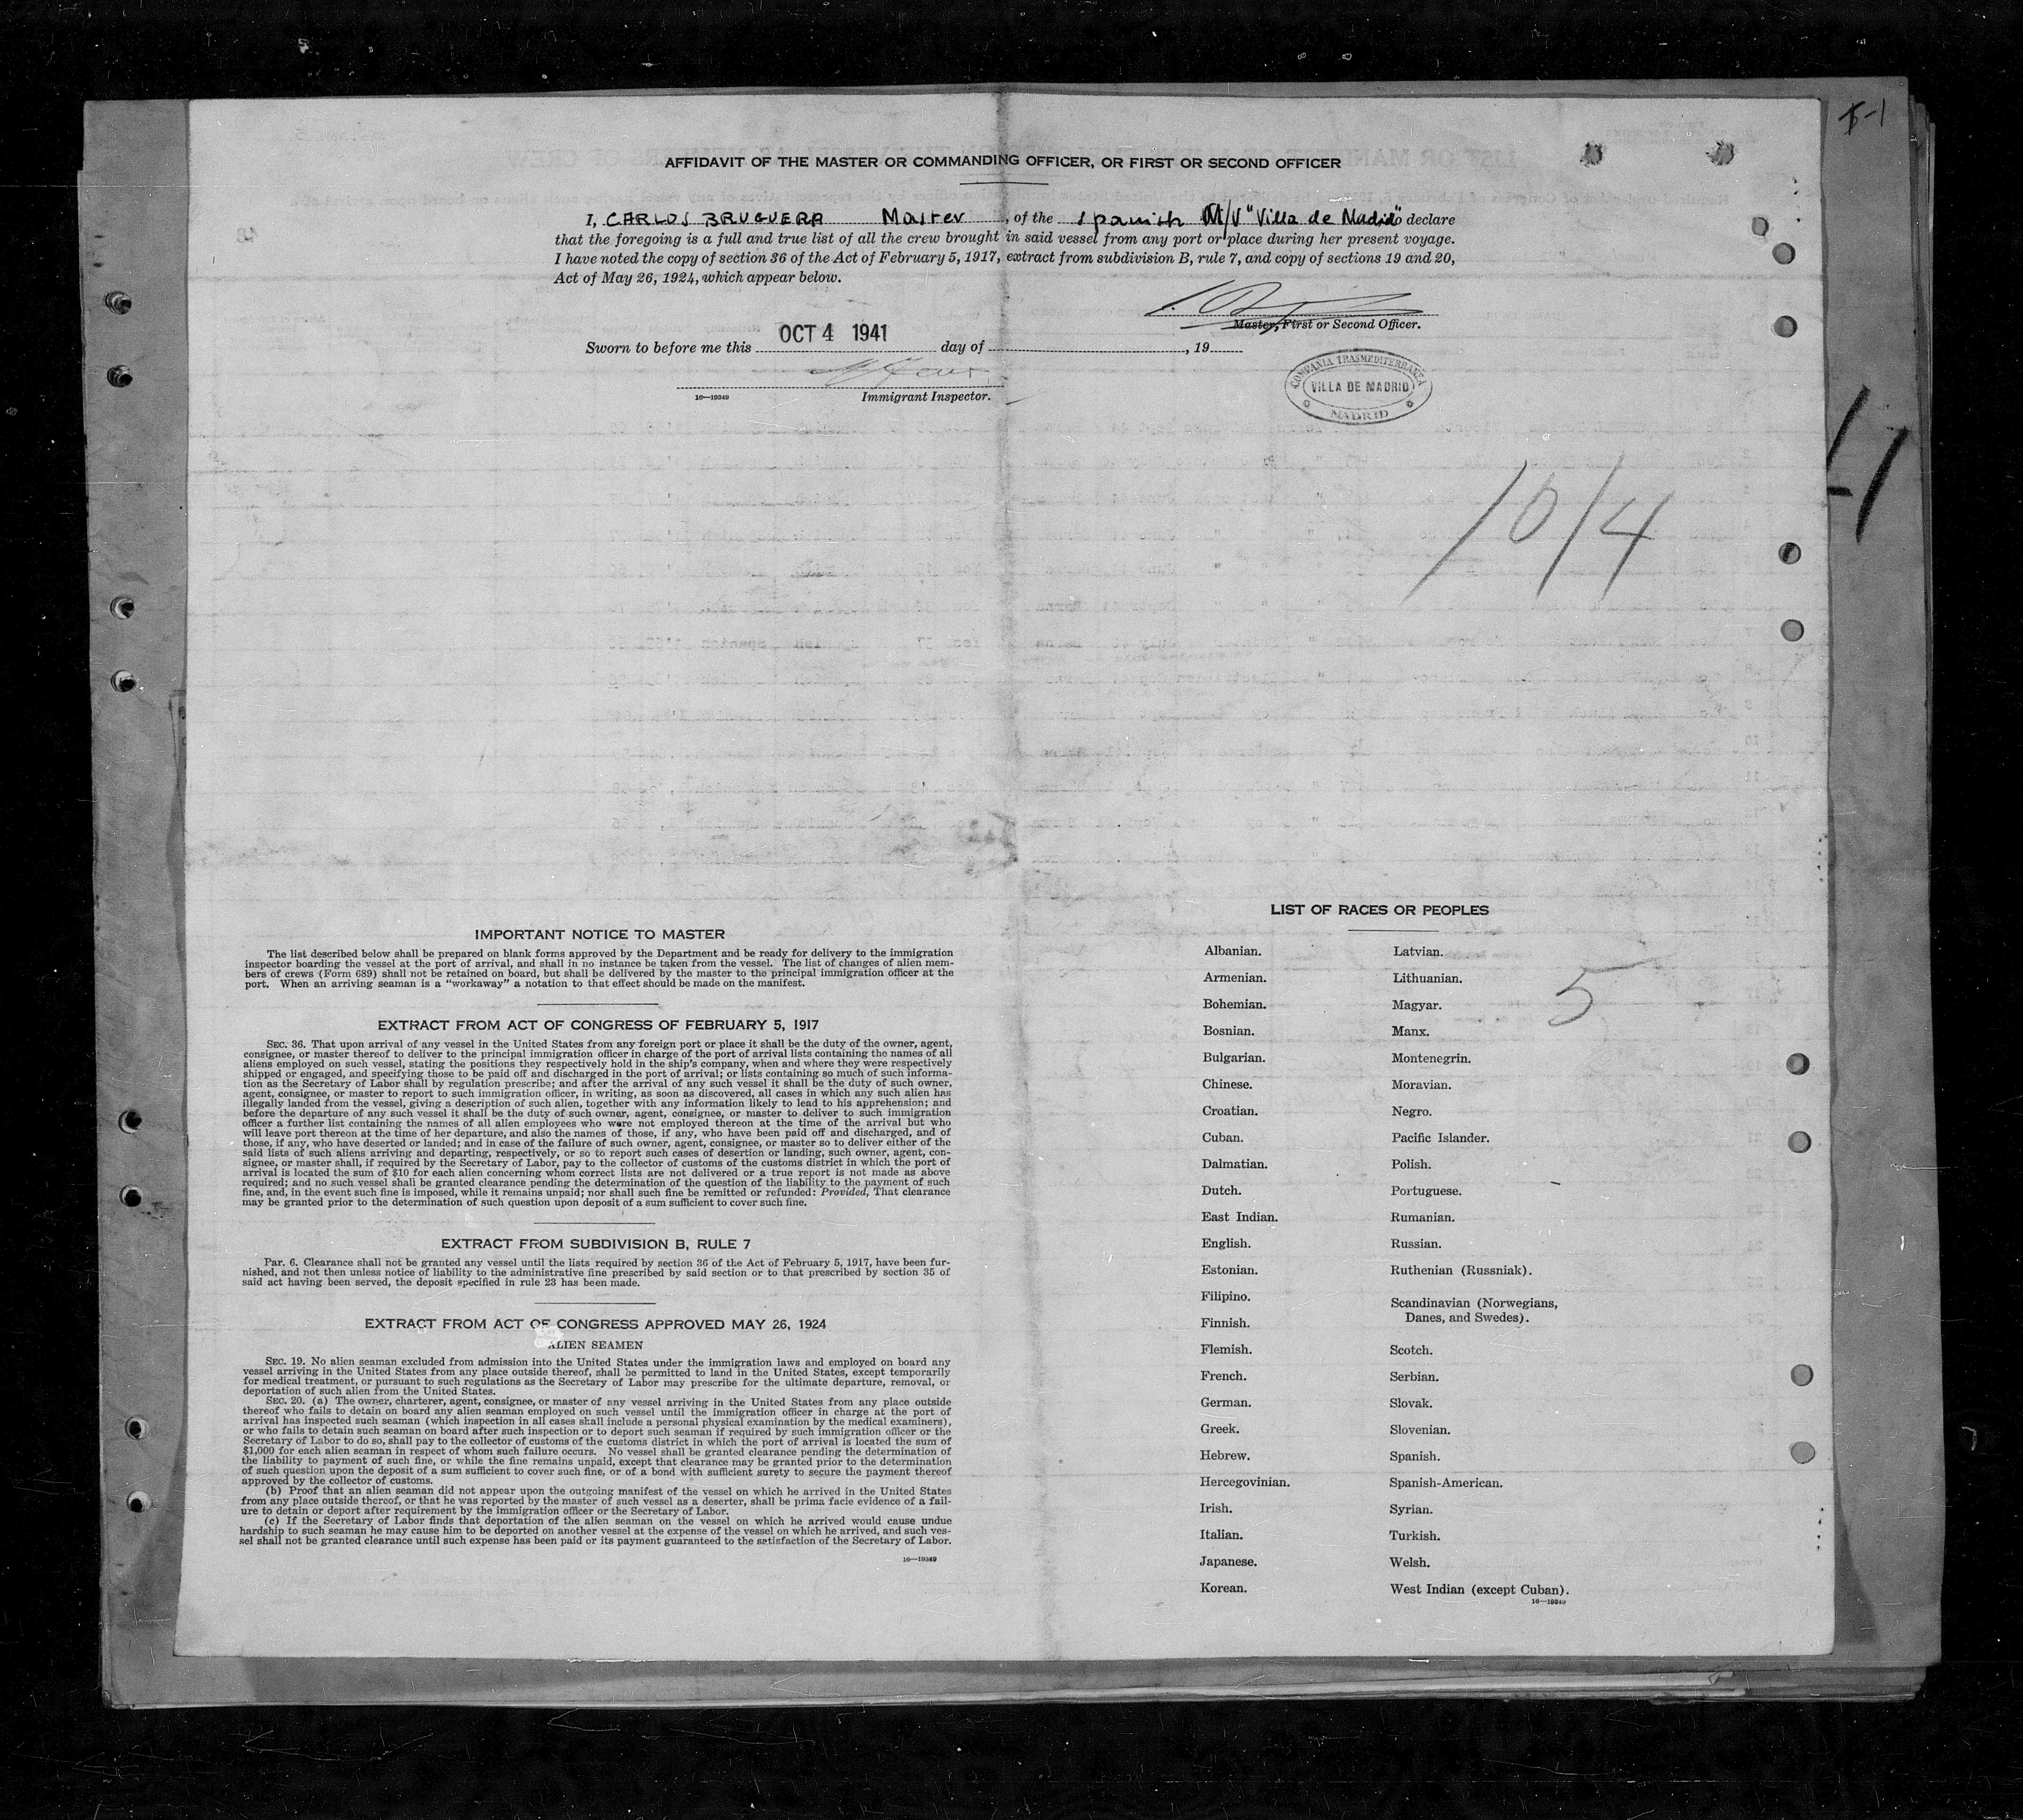 AFFIDAVIT OF THE MASTER OR COMMANDING OFFICER, OR FIRST OR SECOND OFFICER
I, CARLOS BRUGUERA Master, of the Spanish M/V "Villa de Madrid" do declare
that the foregoing is a full and true list of all the crew brought in said vessel from any port or place during her present voyage.
I have noted the copy of section 36 of the Act of February 5, 1917, extract from subdivision B, rule 7, and copy of sections 19 and 20,
Act of May 26, 1924, which appear below.
Master, First or Second Officer.
Sworn to before me this OCT 4 1941 day of , 19
16—19349 Immigrant Inspector.
COMPAÑIA TRASMEDITERRANEA
VILLA DE MADRID
MADRID
10/4
IMPORTANT NOTICE TO MASTER
The list described below shall be prepared on blank forms approved by the Department and be ready for delivery to the immigration
inspector boarding the vessel at the port of arrival, and shall in no instance be taken from the vessel. The list of changes of alien mem-
bers of crews (Form 689) shall not be retained on board, but shall be delivered by the master to the principal immigration officer at the
port. When an arriving seaman is a "workaway" a notation to that effect should be made on the manifest.
EXTRACT FROM ACT OF CONGRESS OF FEBRUARY 5, 1917
SEC. 36. That upon arrival of any vessel in the United States from any foreign port or place it shall be the duty of the owner, agent,
consignee, or master thereof to deliver to the principal immigration officer in charge of the port of arrival lists containing the names of all
aliens employed on such vessel, stating the positions they respectively hold in the ship's company, when and where they were respectively
shipped or engaged, and specifying those to be paid off and discharged in the port of arrival; or lists containing so much of such informa-
tion as the Secretary of Labor shall by regulation prescribe; and after the arrival of any such vessel it shall be the duty of such owner,
agent, consignee, or master to report to such immigration officer, in writing, as soon as discovered, all cases in which any such alien has
illegally landed from the vessel, giving a description of such alien, together with any information likely to lead to his apprehension; and
before the departure of any such vessel it shall be the duty of such owner, agent, consignee, or master to deliver to such immigration
officer a further list containing the names of all alien employees who were not employed thereon at the time of the arrival but who
will leave port thereon at the time of her departure, and also the names of those, if any, who have been paid off and discharged, and of
those, if any, who have deserted or landed; and in case of the failure of such owner, agent, consignee, or master so to deliver either of the
said lists of such aliens arriving and departing, respectively, or so to report such cases of desertion or landing, such owner, agent, con-
signee, or master shall, if required by the Secretary of Labor, pay to the collector of customs of the customs district in which the port of
arrival is located the sum of $10 for each alien concerning whom correct lists are not delivered or a true report is not made as above
required; and no such vessel shall be granted clearance pending the determination of the question of the liability to the payment of such
fine, and, in the event such fine is imposed, while it remains unpaid; nor shall such fine be remitted or refunded: Provided, That clearance
may be granted prior to the determination of such question upon deposit of a sum sufficient to cover such fine.
EXTRACT FROM SUBDIVISION B, RULE 7
Par. 6. Clearance shall not be granted any vessel until the lists required by section 36 of the Act of February 5, 1917, have been fur-
nished, and not then unless notice of liability to the administrative fine prescribed by said section or to that prescribed by section 35 of
said act having been served, the deposit specified in rule 23 has been made.
EXTRACT FROM ACT OF CONGRESS APPROVED MAY 26, 1924
ALIEN SEAMEN
SEC. 19. No alien seaman excluded from admission into the United States under the immigration laws and employed on board any
vessel arriving in the United States from any place outside thereof, shall be permitted to land in the United States, except temporarily
for medical treatment, or pursuant to such regulations as the Secretary of Labor may prescribe for the ultimate departure, removal, or
deportation of such alien from the United States.
SEC. 20. (a) The owner, charterer, agent, consignee, or master of any vessel arriving in the United States from any place outside
thereof who fails to detain on board any alien seaman employed on such vessel until the immigration officer in charge at the port of
arrival has inspected such seaman (which inspection in all cases shall include a personal physical examination by the medical examiners),
or who fails to detain such seaman on board after such inspection or to deport such seaman if required by such immigration officer or the
Secretary of Labor to do so, shall pay to the collector of customs of the customs district in which the port of arrival is located the sum of
$1,000 for each alien seaman in respect of whom such failure occurs. No vessel shall be granted clearance pending the determination of
the liability to payment of such fine, or while the fine remains unpaid, except that clearance may be granted prior to the determination
of such question upon the deposit of a sum sufficient to cover such fine, or of a bond with sufficient surety to secure the payment thereof
approved by the collector of customs.
(b) Proof that an alien seaman did not appear upon the outgoing manifest of the vessel on which he arrived in the United States
from any place outside thereof, or that he was reported by the master of such vessel as a deserter, shall be prima facie evidence of a fail-
ure to detain or deport after requirement by the immigration officer or the Secretary of Labor.
(c) If the Secretary of Labor finds that deportation of the alien seaman on the vessel on which he arrived would cause undue
hardship to such seaman he may cause him to be deported on another vessel at the expense of the vessel on which he arrived, and such ves-
sel shall not be granted clearance until such expense has been paid or its payment guaranteed to the satisfaction of the Secretary of Labor.
16—19349
LIST OF RACES OR PEOPLES
Albanian.
Armenian.
Bohemian.
Bosnian.
Bulgarian.
Chinese.
Croatian.
Cuban.
Dalmatian.
Dutch.
East Indian.
English.
Estonian.
Filipino.
Finnish.
Flemish.
French.
German.
Greek.
Hebrew.
Hercegovinian.
Irish.
Italian.
Japanese.
Korean.
Latvian.
Lithuanian.
Magyar.
Manx.
Montenegrin.
Moravian.
Negro.
Pacific Islander.
Polish.
Portuguese.
Rumanian.
Russian.
Ruthenian (Russniak).
Scandinavian (Norwegians,
Danes, and Swedes).
Scotch.
Serbian.
Slovak.
Slovenian.
Spanish.
Spanish-American.
Syrian.
Turkish.
Welsh.
West Indian (except Cuban).
16—19349
5